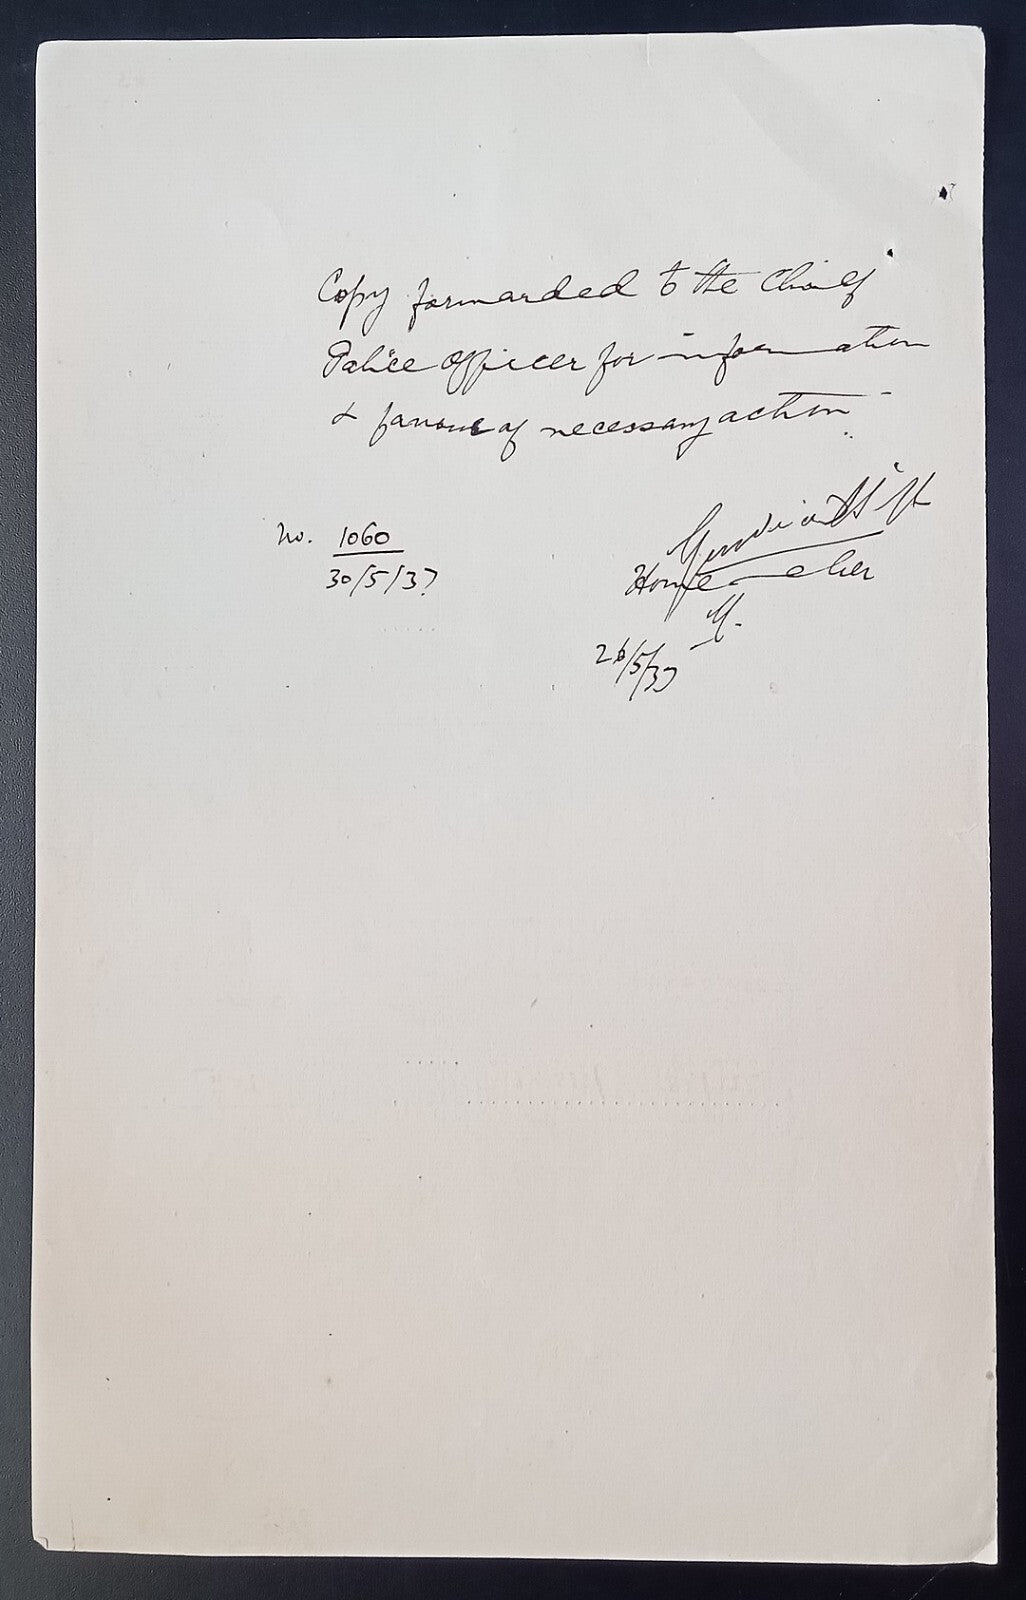 Copy forwarded to the Chief
Police Officer for information
& favour of necessary action
No. 1060
30/5/37
Home
26/5/37